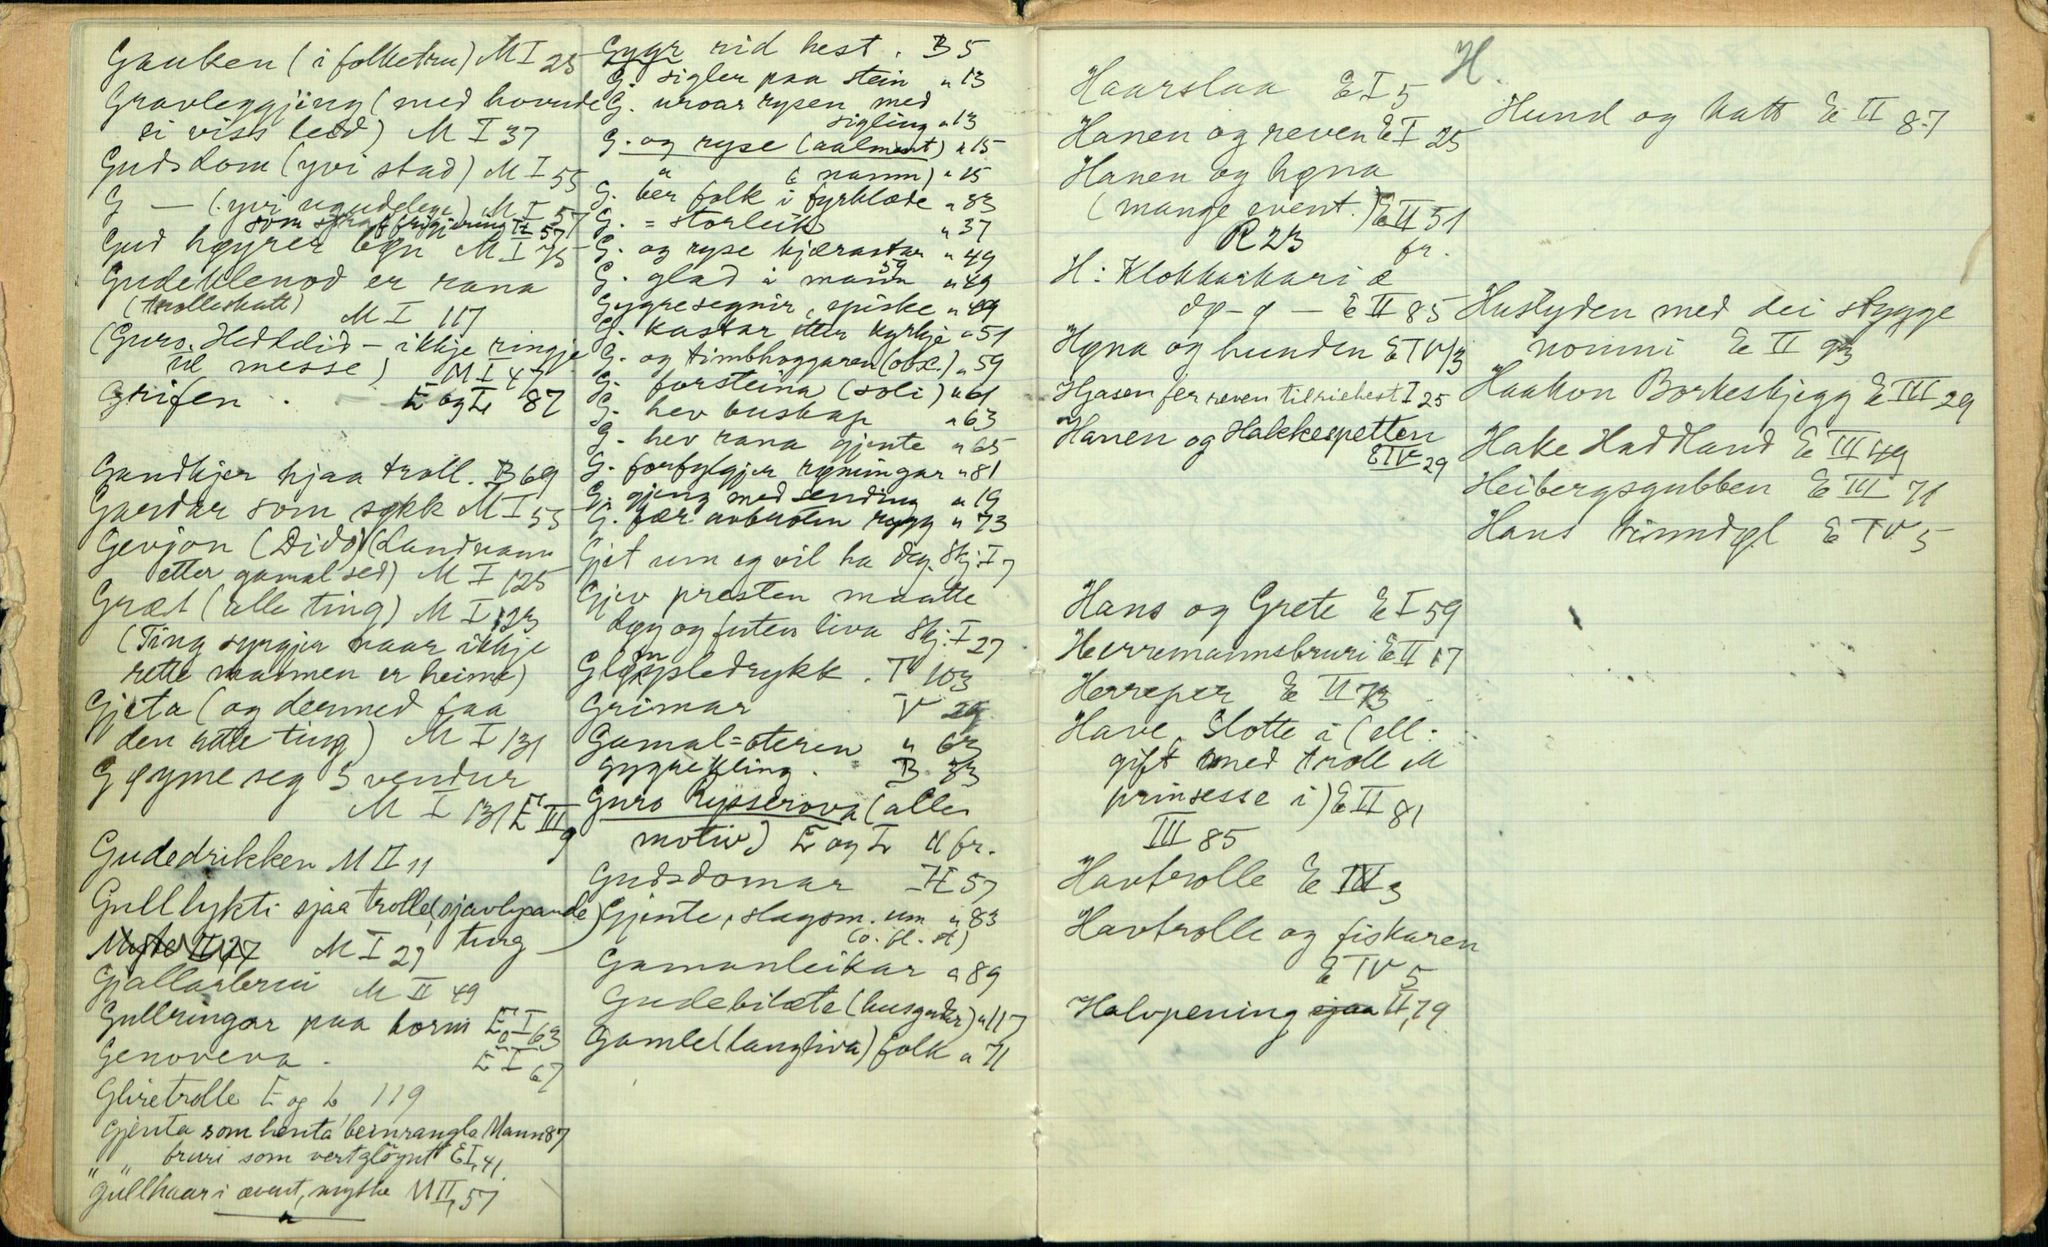 Gauken (i folketru) M I 25
Gravleggjing (med hovude
i viss leid) M I 37
Gudsdom (yvi stad) M I 55
G — (yvi ugudelege) M I 57
som straff
Gud høyrer bøn M I 75
Gudeklenod er rana
(trolleskatt) M I 117
(Guro Heddelid - ikkje ringje
til messe) M I 47
Grifen . E og L 87
Gandkjer hjaa troll. B 69
Gardar som søkk M I 55
Gevjon (Dido) (Landnam
etter gamal sed) M I 125
Græt (alle ting) M I 123
(Ting syrgjer naar ikkje
rette mannen er heime)
Gjeta (og dermed faa
den rette ting) M I 131
Gøyme seg 3 vendur
M I 131 E III 9
Gudedrikken M II 11
Gullykti sjaa trolle, (sjavlysande)
M I 29 ting
Gjallarbrui M II 49
Gullringar paa horni E I 63
Genoveva . E I 67
Gliretrolle E og L 119
Gjenta som henta beinrangla Mann 87
" " bruri som vert gløymt E I, 41.
Gullhaar i ævent, mythe M II, 57
Gygr rid hest . B 5
G. sigler paa stein " 13
G. uroar rysen med
sigling " 13
G. og ryse (aalment) " 15
" (namn) " 15
G. ber folk i fyrklæde " 83
G. = storleik " 37
G. og ryse kjærastar " 49
G. glad i mann 59 " 49
Gygresegnir, episke " 49
G. kastar etter kyrkje " 51
G. og timbhoggaren (obs.) " 59
G. forsteina (soli) " 61
G. hev buskap " 63
G. hev rana gjente " 65
G. forfylgjer rømingar " 81
G. gjeng med sending " 19
G. fær avbroten rygg " 73
Gjet um eg vil ha deg. Skj. I 7
Gjev presten maatte
døy og futen liva Skj. I 27
Gløymsledrykk . T 103
Grimar V 29
Gamal-oteren " 63
Gygrekling . B 83
Guro Rysserova (alle
motiv) E og L 11 fr.
Gudsdomar H 57
Gjente, slagsm. um " 83
(o. fl. st)
Gamanleikar " 89
Gudebilæte (husgudar) " 117
Gamle (langliva) folk " 71
H.
Haarslaa E I 5
Hanen og reven E I 25
Hanen og høna
(mange event.) E II 51
R 23 fr.
H: Klokkarkari æ
dø-ø — E II 85
Høna og hunden E IV 13
Hjasen fer reven til ridehest I 25
Hanen og Hakkespetten
E IV 29
Hans og Grete E I 59
Herremannsbruri E II 17
Herreper E II 73
Have, Slotte i (ell.
gift med trolle M
prinsesse i) E II 81
III 85
Havtrolle E IV 3
Havtrolle og fiskaren
E IV 5
Halvpening sjaa II, 79
Hund og katt E II 87
Huslyden med dei stygge
nomni E II 93
Haakon Borkeskjegg E III 29
Hake Haddland E III 49
Heibergsgubben E III 71
Hans E IV 5